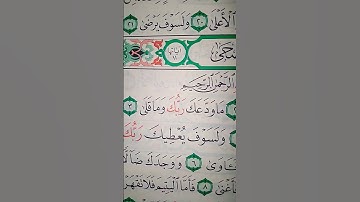 ٱلۡأَعۡلَىٰ ٢٠ وَلَسَوۡفَ يَرۡضَىٰ ٢١
ٱلرَّحۡمَٰنِ ٱلرَّحِيمِ
مَا وَدَّعَكَ رَبُّكَ وَمَا قَلَىٰ ٣
وَلَسَوۡفَ يُعۡطِيكَ رَبُّكَ
فَـَٔاوَىٰ ٦ وَوَجَدَكَ ضَآلّٗا
فَأَغۡنَىٰ ٨ فَأَمَّا ٱلۡيَتِيمَ فَلَا تَقۡهَرۡ